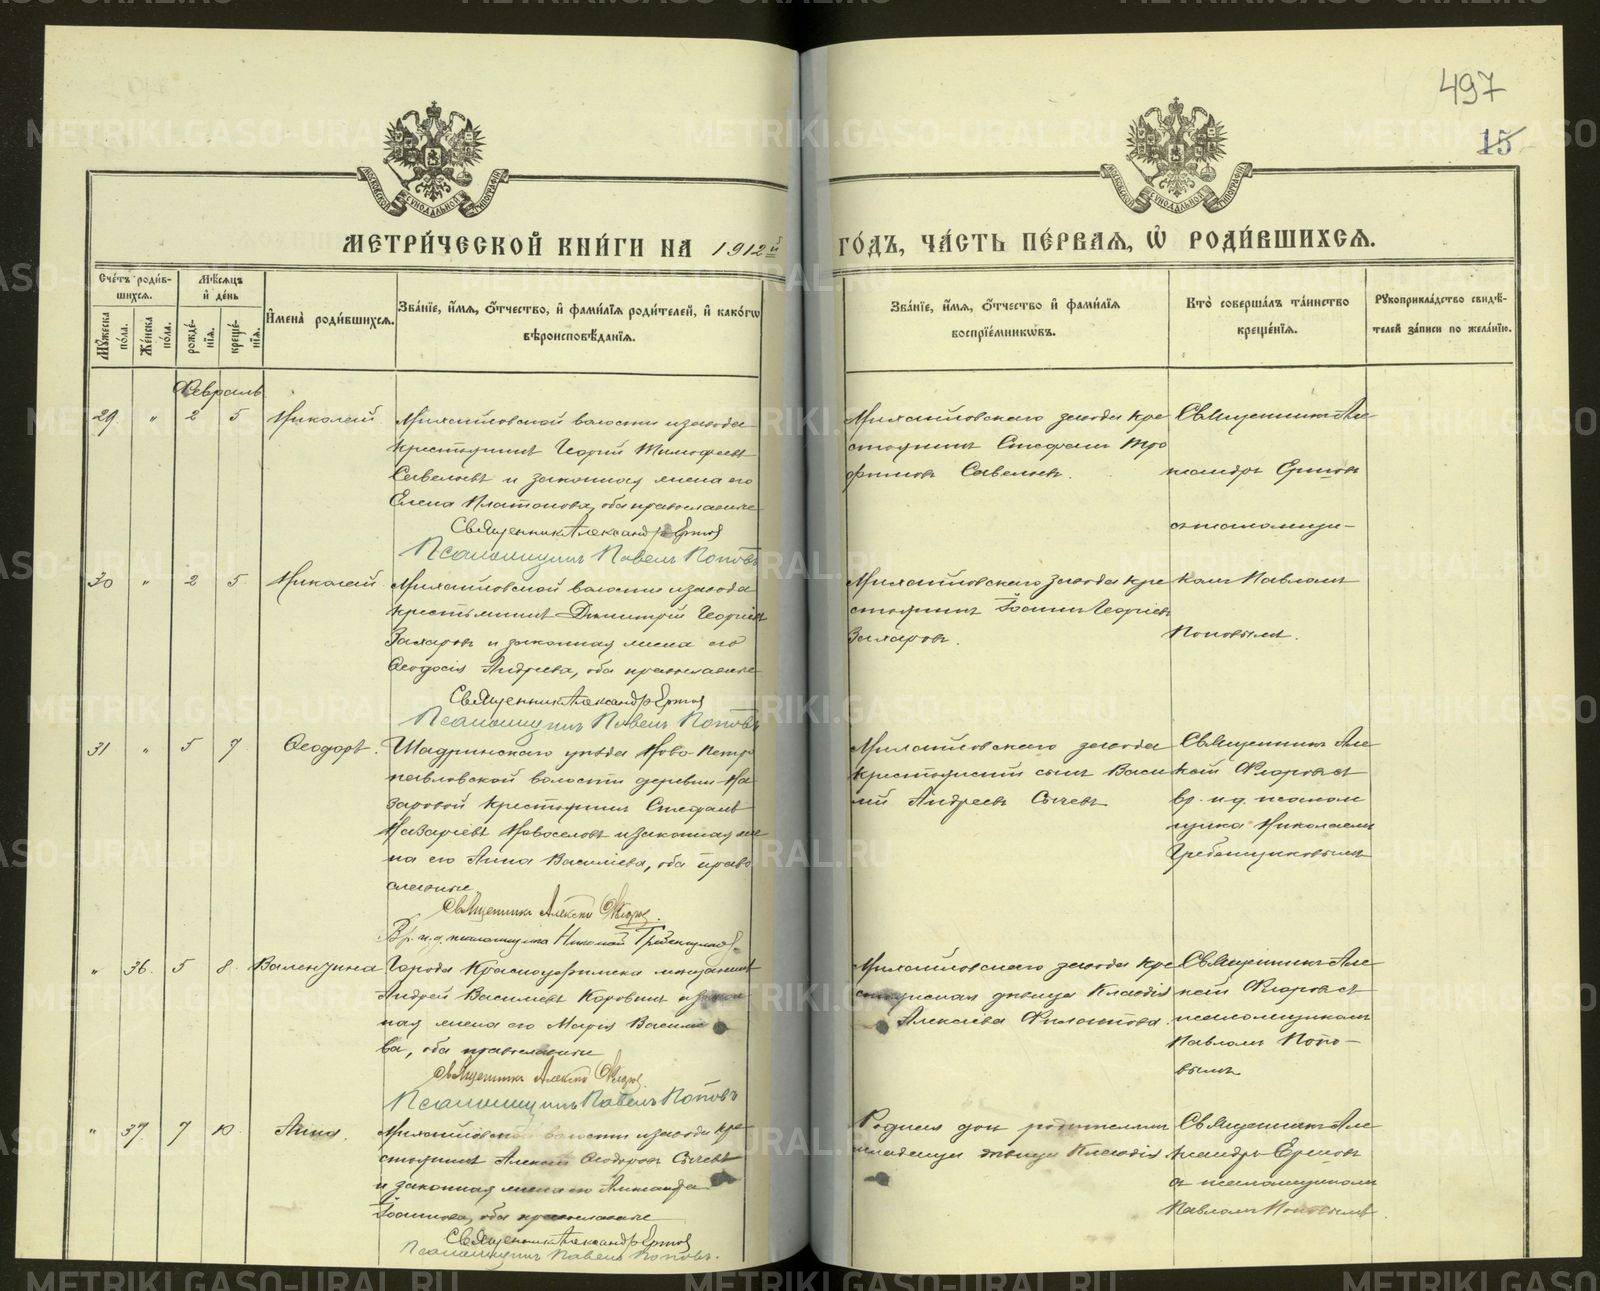 497
15
МЕТРИ́ЧЕСКОЙ КНИ́ГИ НА 1912й
ГО́ДЪ, ЧА́СТЬ ПЕ́РВАЯ, Ѡ҆ РОДИ́ВШИХСЯ.
Сче́тъ роди́вшихся.
Мꙋ́жеска по́ла.
Же́нска по́ла.
Мѣ́сяцъ и҆ де́нь
рожде́нїя.
креще́нїя.
И҆мена̀ роди́вшихся.
Зва́нїе, и҆́мя, ѻ҆́тчество, и҆ фами́лїя роди́телей, и҆ како́гѡ
вѣроисповѣ́данїя.
Зва́нїе, и҆́мя, ѻ҆́тчество и҆ фами́лїя
воспрїе́мникѡвъ.
Кто̀ соверша́лъ та́инство
креще́нїя.
Рꙋкоприкла́дство свидѣ́-
телей за́писи по жела́нїю.
Февраль
29 " 2 5 Николай
Михайловской волости и завода
крестьянинъ Георгій Тимофеевъ
Савельевъ и законная жена его
Елена Платонова, оба православные
Священникъ Александръ Ершовъ
Псаломщикъ Павелъ Поповъ
Михайловскаго завода кре
стьянинъ Стефанъ Тро
фимовъ Савельевъ.
Священникъ Але
ксандръ Ершовъ
съ псаломщи-
30 " 2 5 Николай
Михайловской волости и завода
крестьянинъ Димитрій Георгіевъ
Захаровъ и законная жена его
Ѳеодосія Андреева, оба православные
Священникъ Александръ Ершовъ
Псаломщикъ Павелъ Поповъ
Михайловскаго завода кре
стьянинъ Іоаннъ Георгіевъ
Захаровъ.
комъ Павломъ
Поповымъ.
31 " 5 7 Ѳеодоръ.
Шадринскаго уѣзда Ново-Петро
павловской волости деревни На
заровой крестьянинъ Стефанъ
Назаріевъ Новоселовъ и законная же
на его Анна Василіева, оба право
славные
Священникъ Алексій Флоровъ.
Вр. и.д. псаломщика Николай Гребенщиковъ
Михайловскаго завода
крестьянскій сынъ Васи
лій Андреевъ Сычевъ
Священникъ Але
ксій Флоровъ съ
вр. и.д. псалом
щика Николаемъ
Гребенщиковымъ
" 36. 5 8. Валентина
Города Красноуфимска мѣщанинъ
Андрей Васильевъ Коровинъ и закон
ная жена его Марія Василье
ва, оба православные
Священникъ Алексій Флоровъ.
Псаломщикъ Павелъ Поповъ
Михайловскаго завода кре
стьянская дѣвица Клавдія
Алексѣева Филатова.
Священникъ Але
ксій Флоровъ съ
псаломщикомъ
Павломъ Попо-
вымъ
" 37. 7 10. Анна.
Михайловской волости и завода кре
стьянинъ Алексій Ѳеодоровъ Сычевъ
и законная жена его Александра
Іоаннова, оба православные
Священникъ Александръ Ершовъ
Псаломщикъ Павелъ Поповъ.
Родная дочь родителямъ
младенца дѣвица Клавдія
Священникъ Але
ксандръ Ершовъ
съ псаломщикомъ
Павломъ Поповымъ.